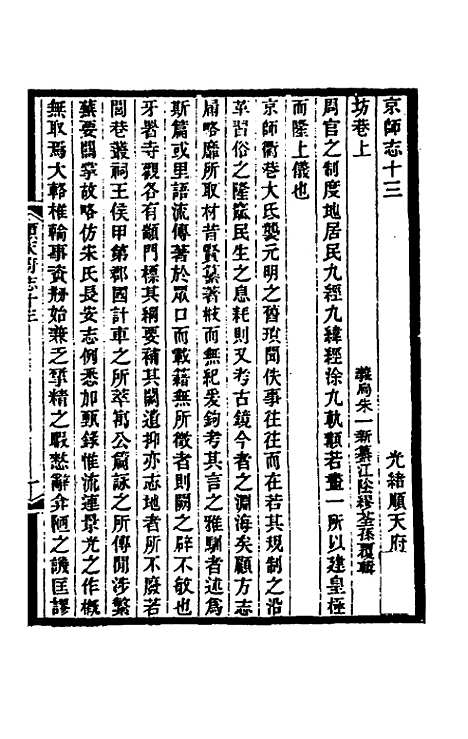 京師志十三　光緒順天府
坊巷上　義烏朱一新纂江陰繆荃孫覆輯
周官之制度地居民九經九緯經涂九軌顯若畫一所以建皇極
而隆上儀也
京師衢巷大氐襲元明之舊瑣聞佚事往往而在若其規制之沿
革習俗之隆窳民生之息耗則又考古鏡今者之淵海矣顧方志
屑略靡所取材昔賢纂著歧而無紀爰鉤考其言之雅馴者述爲
斯篇或里語流傳著於眾口而載籍無所徵者則闕之辟不敏也
牙署寺觀各有顓門標其綱要補其闕遺抑亦志地者所不廢若
閭巷叢祠王侯甲第郡國計車之所萃寓公篇詠之所傳聞涉繁
蕪要關掌故略仿朱氏長安志例悉加甄錄惟流連景光之作概
無取焉大輅椎輪事資剙始兼乏揅精之暇愁辭弇陋之譏匡謬
順天府志十三　一